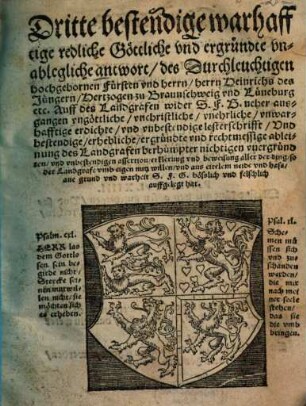 Dritte bestendige warhaff
tige redliche Göttliche vnd ergründte vn-
ablegliche antwort / des Durchleuchtigen
hochgebornen Fürsten vnd herrn / herrn Heinrichs des
Jüngern / Hertzogen zu Braunschweig vnd Lüneburg
etc. Auff des Landgrafen wider S. F. G. newer aus-
gangen vngöttliche / vnchristliche / vnehrliche / vnwar-
hafftige erdichte / vnd vnbestendige lesterschrifft / Vnd
bestendige / erhebliche / ergründte vnd rechtmessige ableh-
nung des Landgrafen berhümpter nichtigen vnergründ-
ten vnd vnbestendigen
der Landgraf vnd eigen
ane grund vnd warheit S. F. G. böslich vnd felschlich
auffgelegt hat.
Psalm. cxl.
HERR las
dem Gottlo-
sen sin be-
girde nicht /
Stercke sei-
nen mutwil-
len nicht / sie
möchten sich
es erheben.
Psal. lx.
Sche-
men mü
ssen sich
vnd zu
schanden
werden /
die mir
nach mei
ner seele
stehen /
das sie
die vmb-
bringen.